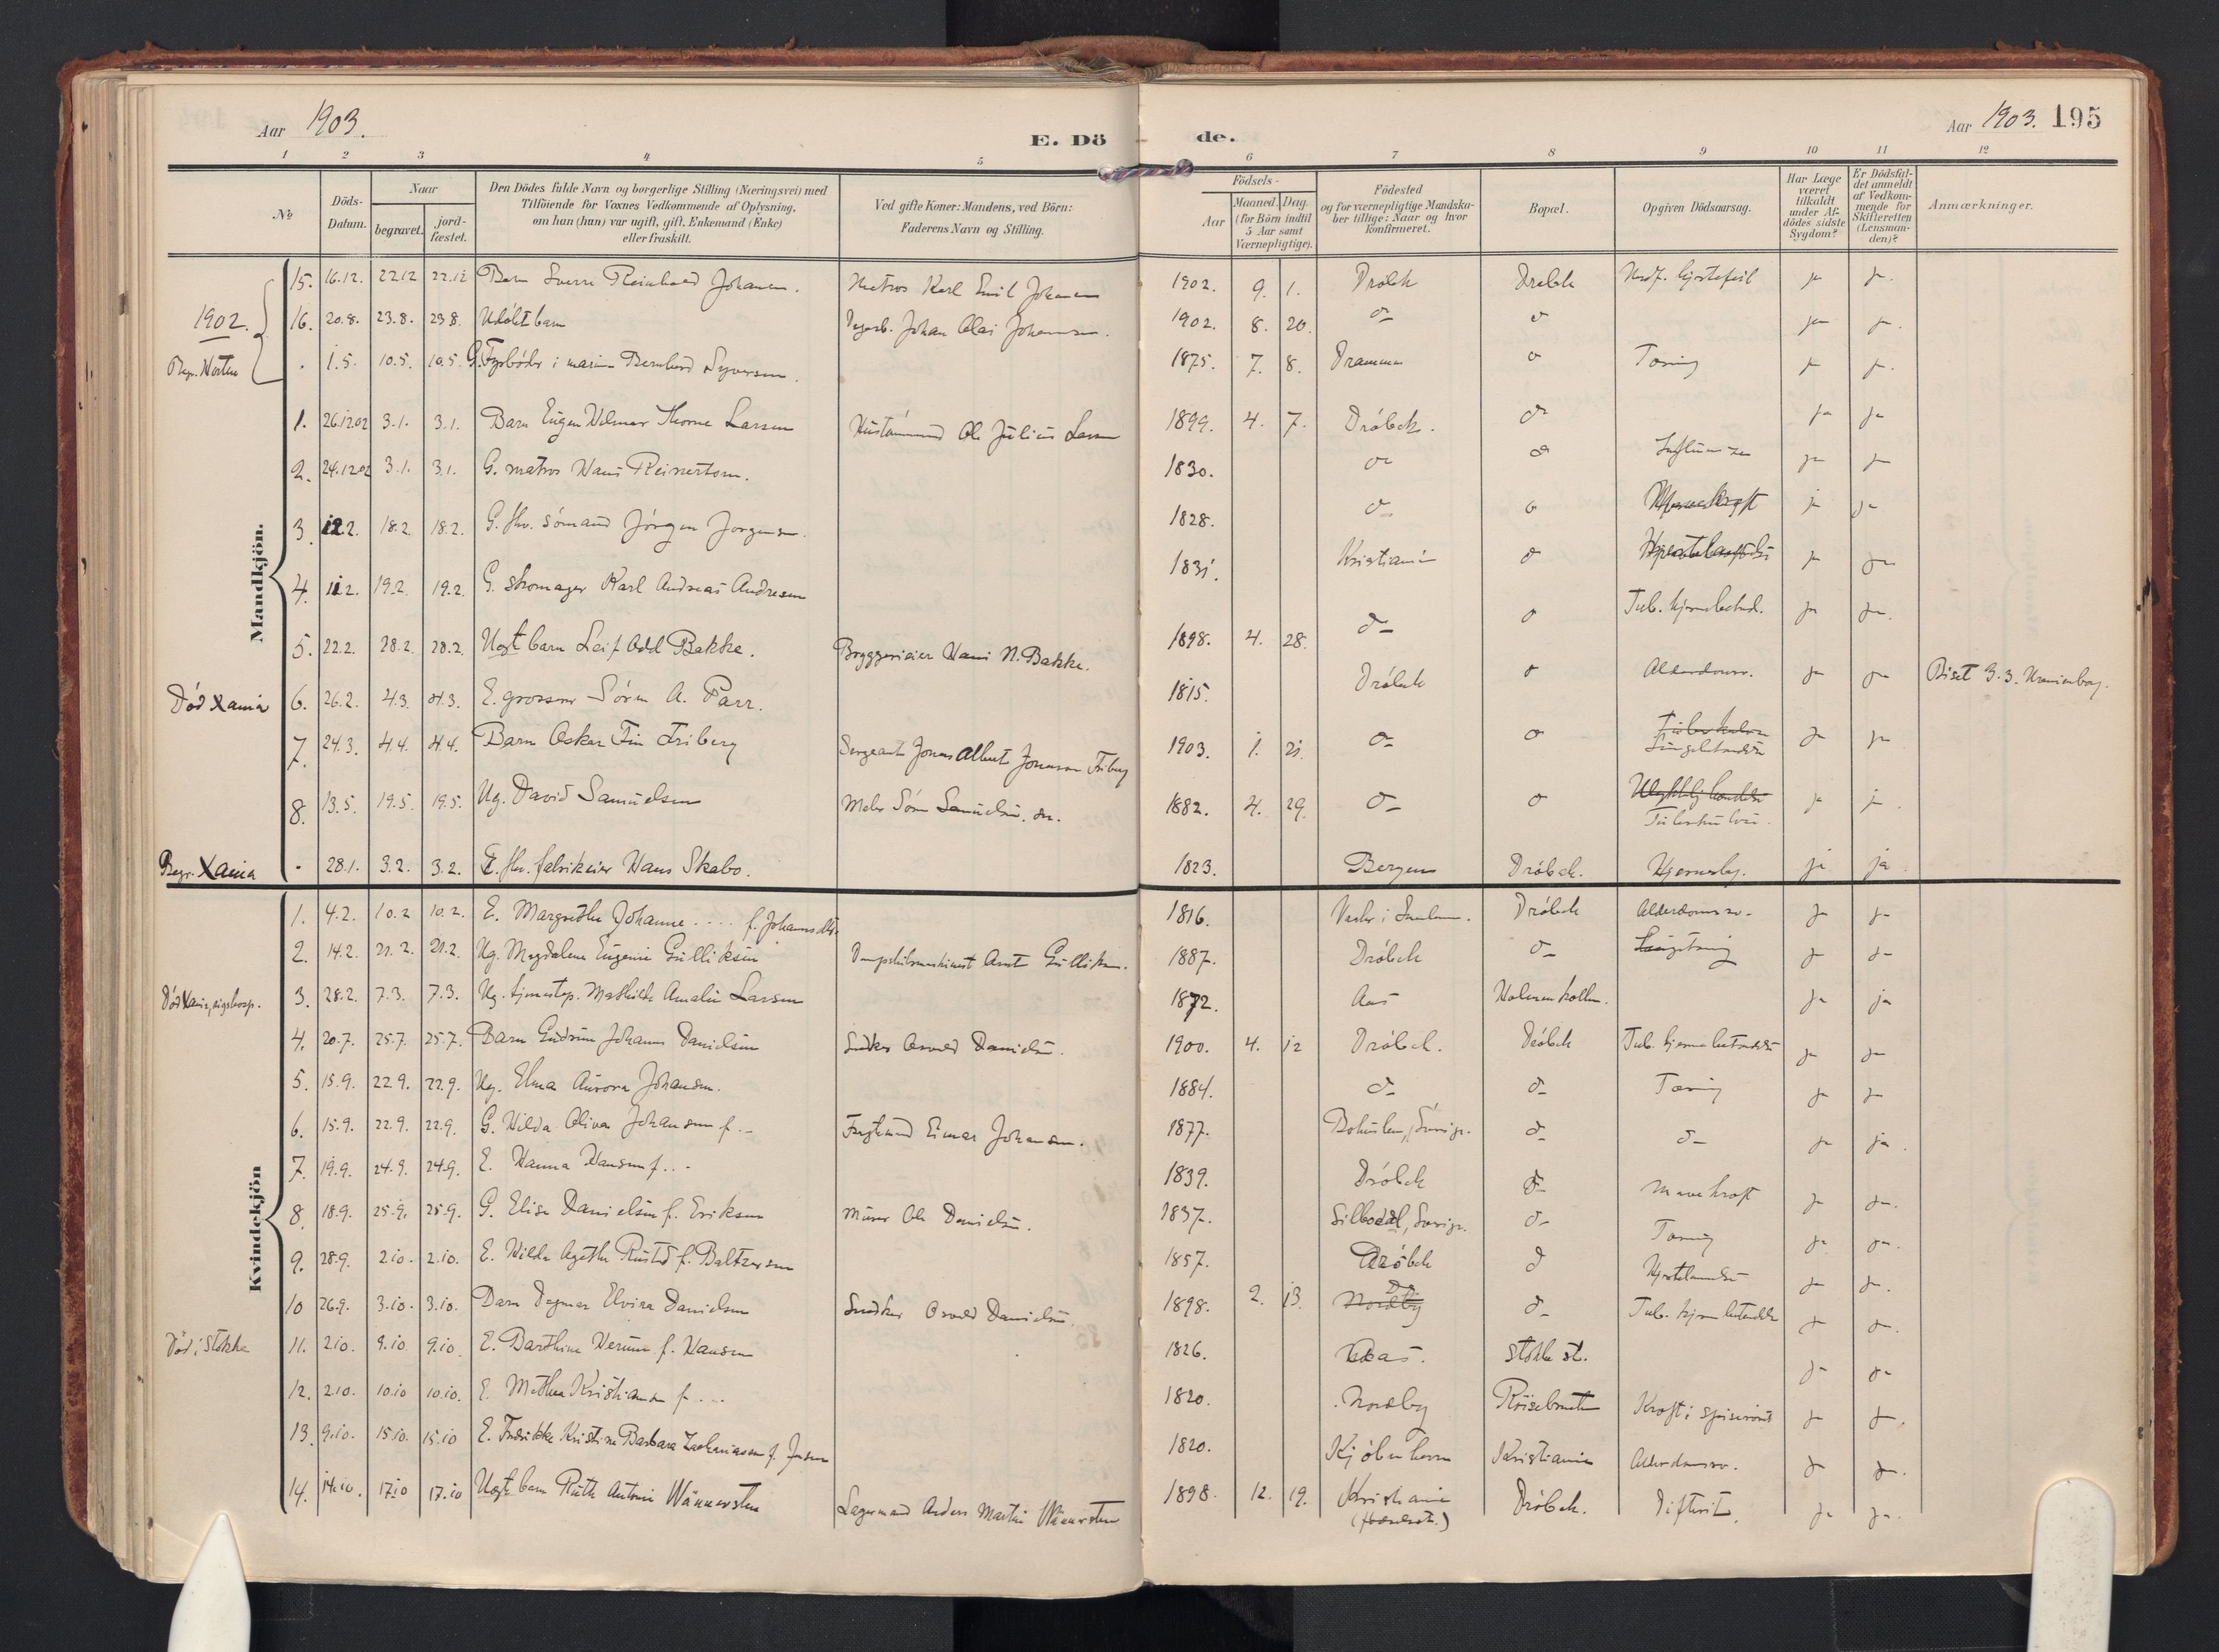 Aar 1903.
E. Dö de.
Aar 1903. 195
1 2 3 4 5 6 7 8 9 10 11 12
№
Döds-Datum.
Naar
begravet.
jord-fæstet.
Den Dödes fulde Navn og borgerlige Stilling (Næringsvei) med
Tilföiende for Voxnes Vedkommende af Oplysning,
om han (hun) var ugift, gift, Enkemand (Enke)
eller fraskilt.
Ved gifte Koner: Mandens, ved Börn:
Faderens Navn og Stilling.
Födsels-
Aar
Maaned. Dag.
(for Börn indtil
5 Aar samt
Værnepligtige).
Födested
og for værnepligtige Mandska-
ber tillige: Naar og hvor
Konfirmeret.
Bopæl.
Opgiven Dödsaarsag.
Har Læge
været
tilkaldt
under Af-
dödes sidste
Sygdom?
Er Dödsfal-
det anmeldt
af Vedkom-
mende for
Skifteretten
(Lensman-
den)?
Anmærkninger.
1902.
Mandkjön.
15. 16.12. 22.12 22.12 Barn Sverre Reinhard Johansen. Matros Karl Emil Johansen 1902. 9. 1. Dröbak Dröbak Medf. hjertefeil ja ja.
16. 20.8. 23.8. 23.8. Udöbt barn Dagarb. Johan Olai Johannessen. 1902. 8. 20. do do ja ja.
Begr. Horten - 1.5. 10.5. 10.5. G. Fyrböder i marinen Bernhard Syversen. 1875. 7. 8. Drammen do Tæring ja ja.
1. 26.12.02 3.1. 3.1. Barn Eugen Velmar Thorne Larsen Ole Julius Larsen 1899. 4. 7. Dröbak. do ja ja
2. 24.12.02 3.1. 3.1. G. matros Hans Reinertsen. 1830. do do Influenza ja ja
3. 12.2. 18.2. 18.2. G. fhv. sömand Jörgen Jorgensen. 1828. do do Mavekræft ja ja
4. 11.2. 19.2. 19.2. G. skomager Karl Andreas Andresen 1831. Kristiania do ja ja
5. 22.2. 28.2. 28.2. Uegt barn Leif Odd Bakke. Bryggerieier Hans N. Bakke. 1898. 4. 28. do do Tub. hjernebetænd. ja ja.
Död Xania 6. 26.2. 4.3. 4.3. E. grosserer Sören A. Parr. 1815. Dröbak do Alderdomssv. ja ja Biset 3.3. Uranienborg.
7. 24.3. 4.4. 4.4. Barn Oskar Fin Friberg Sergeant Jonas Albert Jonasson Friberg 1903. 1. 21. do do Tuberkulose Lungebetændelse ja ja
8. 13.5. 19.5. 19.5. Ug. David Samuelsen Maler Sören Samuelsen. sen. 1882. 4. 29. do do Tuberkulose. ja ja.
Begr. Xania - 28.1. 3.2. 3.2. E. fhv. fabrikeier Hans Skabo. 1823. Bergen Dröbak. Hjernesbl. ja ja.
Kvindekjön
1. 4.2. 10.2 10.2. E. Margrethe Johanne .... f. Johannesdtr. 1816. Dröbak Alderdomssv. ja ja
2. 14.2. 21.2. 21.2. Ug. Magdalena Eugenie Gulliksen Dampskibsmaskinist Anth Gulliksen. 1887. Dröbak do Lungetæring ja ja
Död Xania, rigshosp. 3. 28.2. 7.3. 7.3. Ug. tjenestep. Mathilde Amalie Larsen 1872. Aas Holmenkollen. ja ja
4. 20.7. 25.7. 25.7. Barn Gudrun Johanne Danielsen Snedker Osvald Danielsen. 1900. 4. 12 Dröbak. Dröbak Tub. hjernebetændelse ja ja
5. 15.9. 22.9. 22.9. Ug. Elma Aurora Johansen. 1884. do do Tæring ja ja
6. 15.9. 22.9. 22.9. G. Hilda Oliva Johansen f. - Einar Johansen. 1877. Bohuslen, Sverige. do do ja ja.
7. 19.9. 24.9. 24.9. E. Hanna Hansen f. .. - 1839. Dröbak do Mavekræft ja ja.
8. 18.9. 25.9. 25.9. G. Elise Danielsen f. Eriksen Murer Ole Danielsen. 1837. Silbodal, Sverige. do Tæring ja ja.
9. 28.9. 2.10. 2.10. E. Hilda Agathe Rustad f. Baltzersen 1857. Dröbak do Hjertelammelse ja ja.
10 26.9. 3.10. 3.10. Barn Dagmar Elvira Danielsen Snedker Osvald Danielsen. 1898. 2. 13. Nordby do do Tub. hjernebetændelse ja ja.
Död i Stokke 11. 2.10. 9.10. 9.10. E. Barthine Herum f. Hansen 1826. Aas. Stokke st. ja ja
12. 2.10. 10.10 10.10. E. Mathea Kristiansen f. ... 1820. Nordby Kræft i spiserøret ja ja.
13. 9.10. 15.10. 15.10 E. Fredrikke Kristine Barbara Zachariassen f. Jensen 1820. Kjöbenhavn Kristiania Alderdomssv. ja ja.
14. 14.10. 17.10 17.10 Uegt. barn Ruth Antonie Wännersten Lagermand Anders Martin Wännersten 1898. 12. 19. Kristiania Dröbak. Difterit. ja ja.